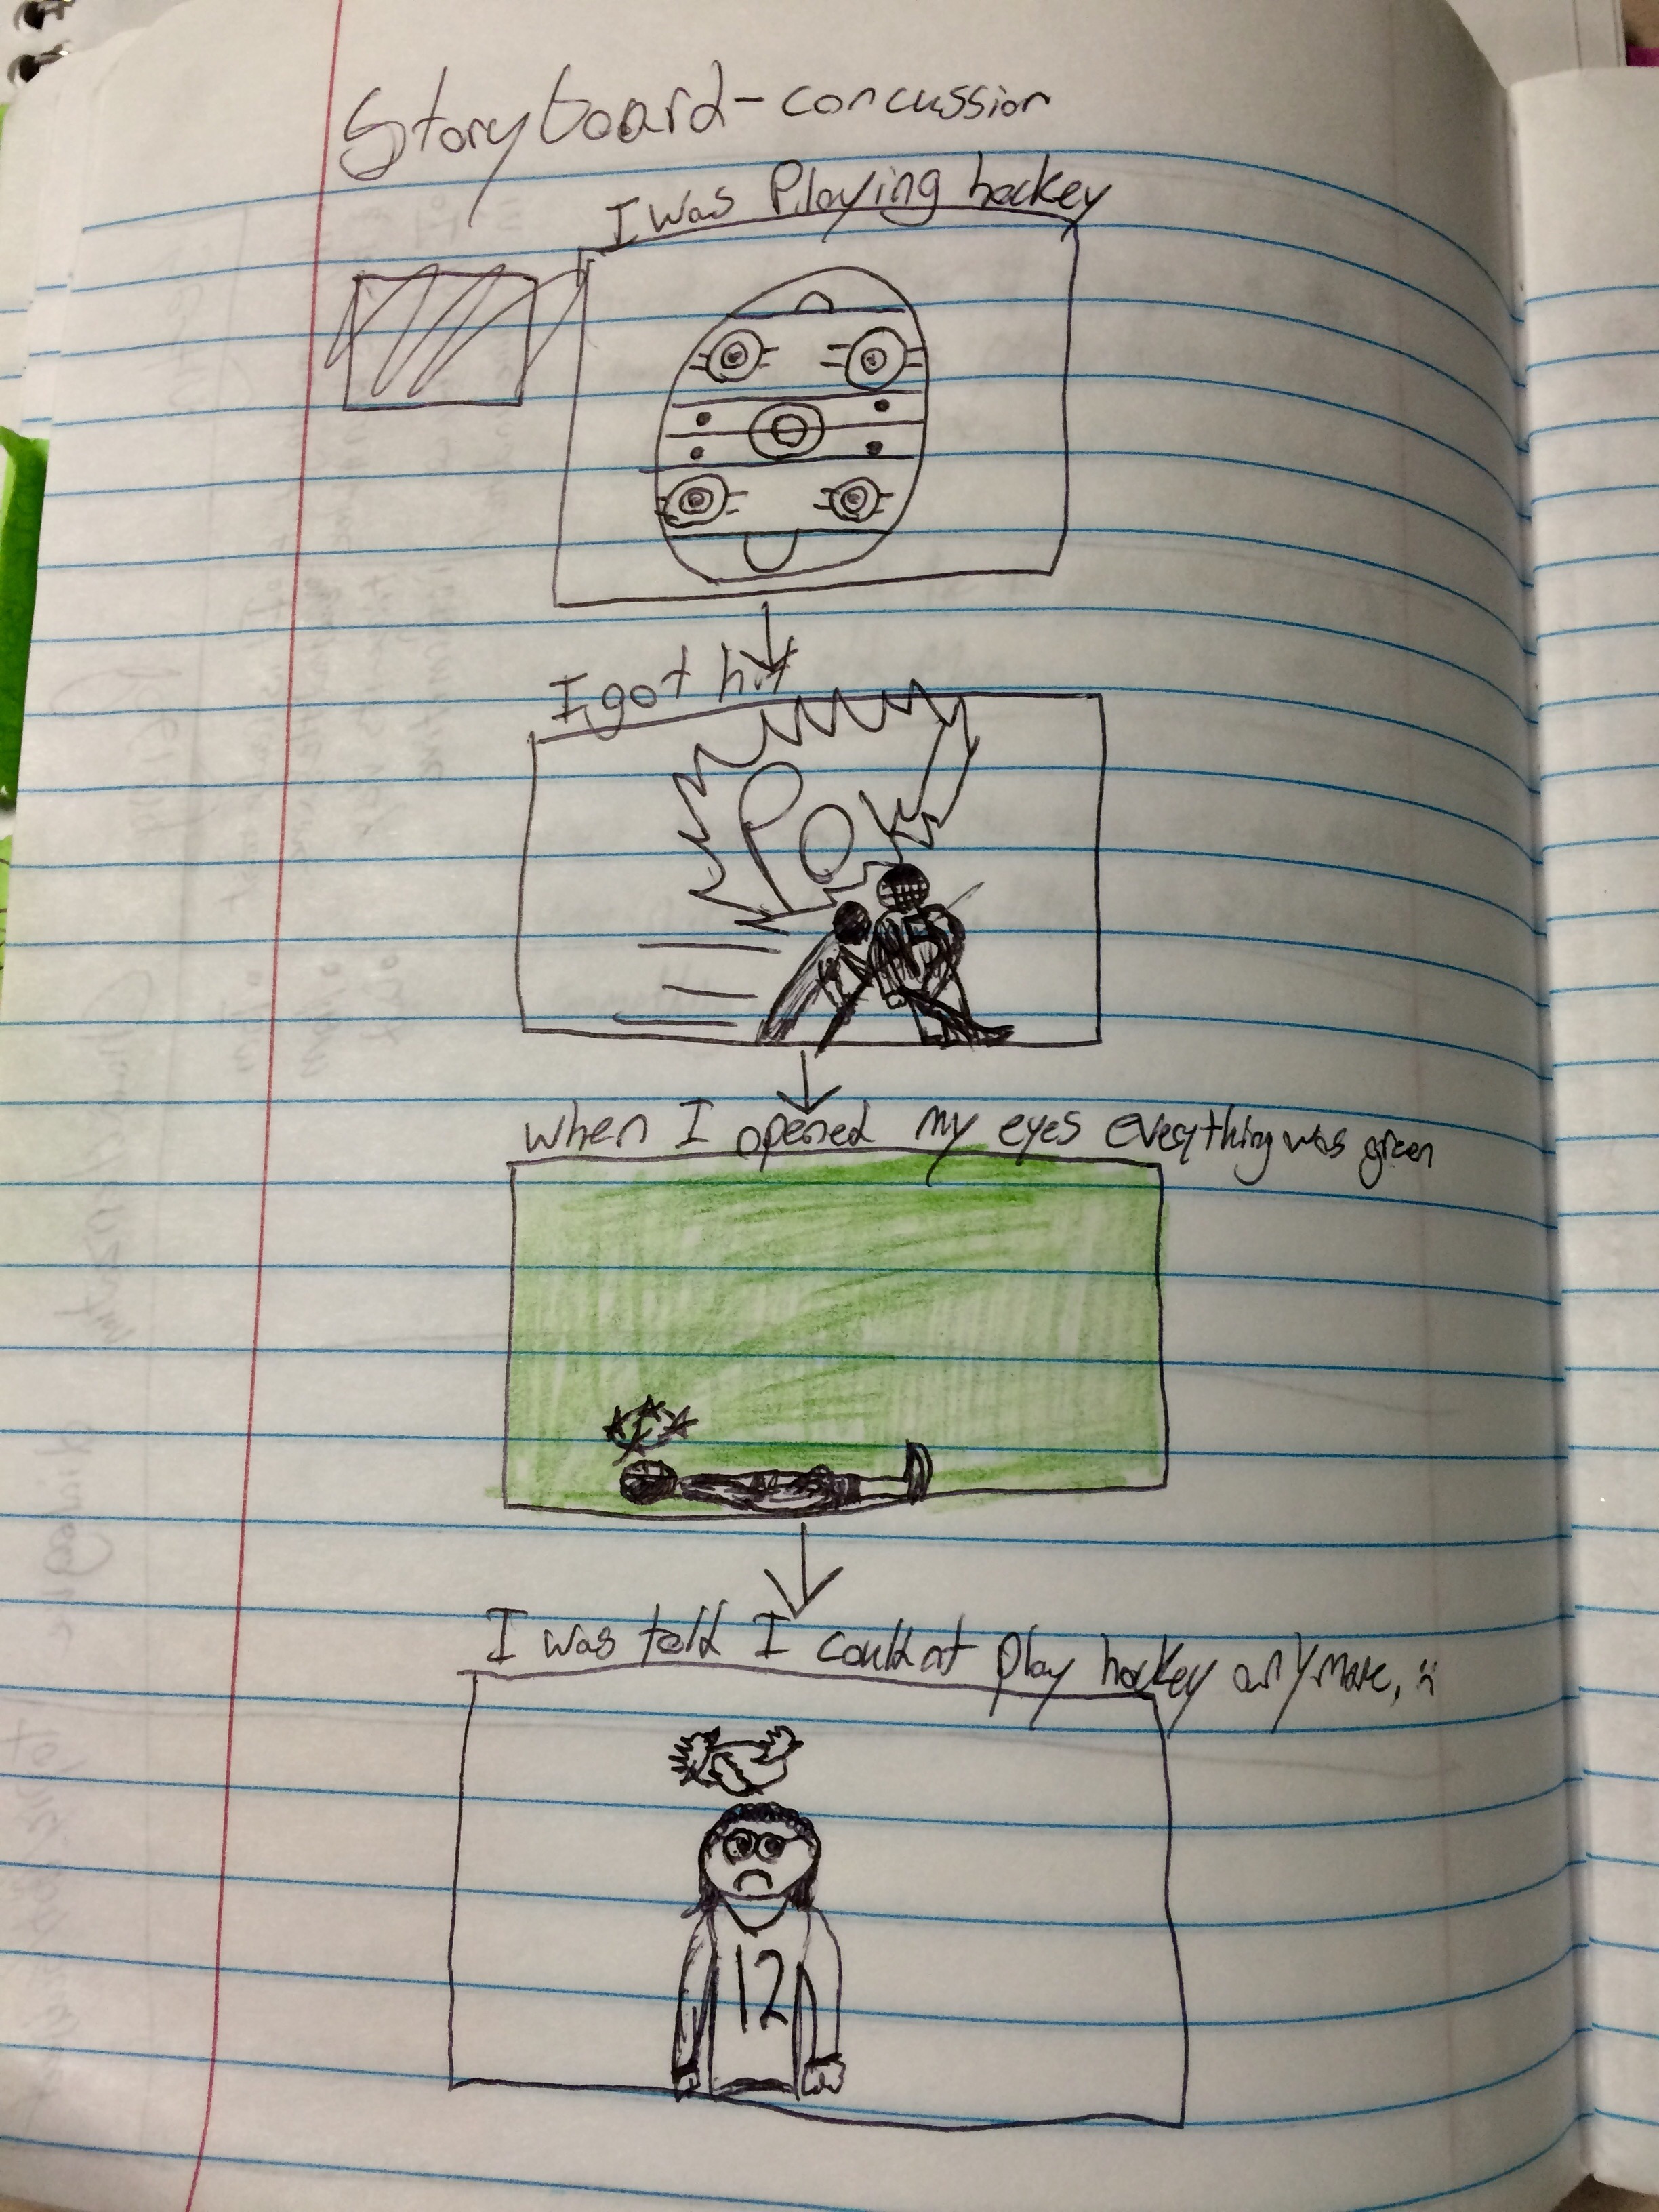 Storyboard - concussion
I was Playing hockey
I got hit
POW
when I opened my eyes everything was green
I was told I couldnt play hockey anymore, :(
12